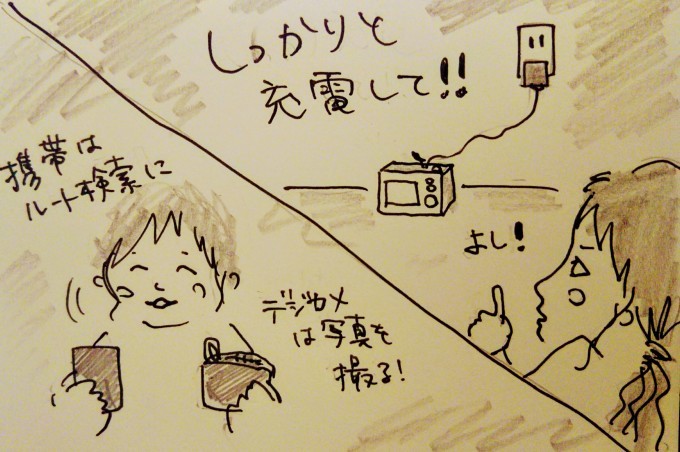 しっかりと
充電して!!
よし!
携帯は
ルート検索に
デジカメ
は写真を
撮る!